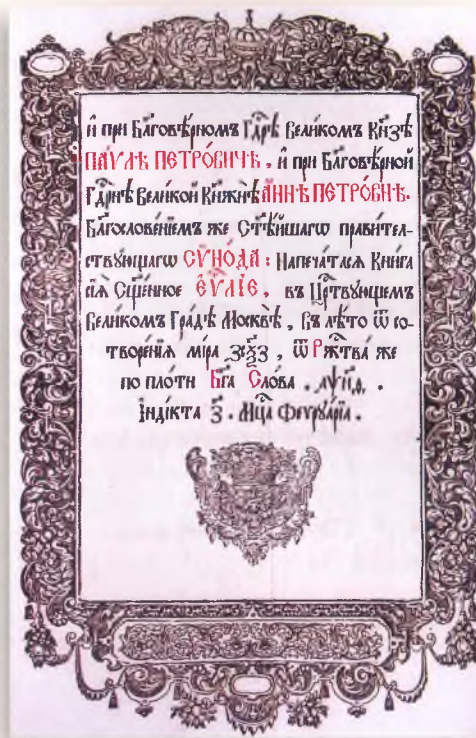 и҆ при Бл҃говѣ́рномъ Гдⷭ҇рѣ̀ Вели́комъ Кн҃зѣ
ПА́ѴЛѢ ПЕТРО́ВИЧѢ, и҆ при Бл҃говѣ́рной
Гдⷭ҇рнѣ Вели́кой Кн҃жнѣ̀ А҆́ННѢ ПЕТРО́ВНѢ.
Бл҃гослове́нїемъ же Ст҃ѣ́йшагѡ прави́тел-
ствꙋющагѡ СѶНО́ДА: Напеча́тасѧ Кни́га
сїѧ̀ Сщ҃е́нное Е҆Ѵ҃ЛІЕ, въ Црⷭ҇твꙋющемъ
Вели́комъ Гра́дѣ Москвѣ̀, Въ лѣ́то ѿ со-
творе́нїѧ мі́ра ҂зсѯ҃з, ѿ Ржⷭ҇тва̀ же
по пло́ти Бг҃а Сло́ва. ҂аѱн҃ѳ.
І҆нді́кта з҃. Мцⷭ҇а Феврꙋа́рїа.